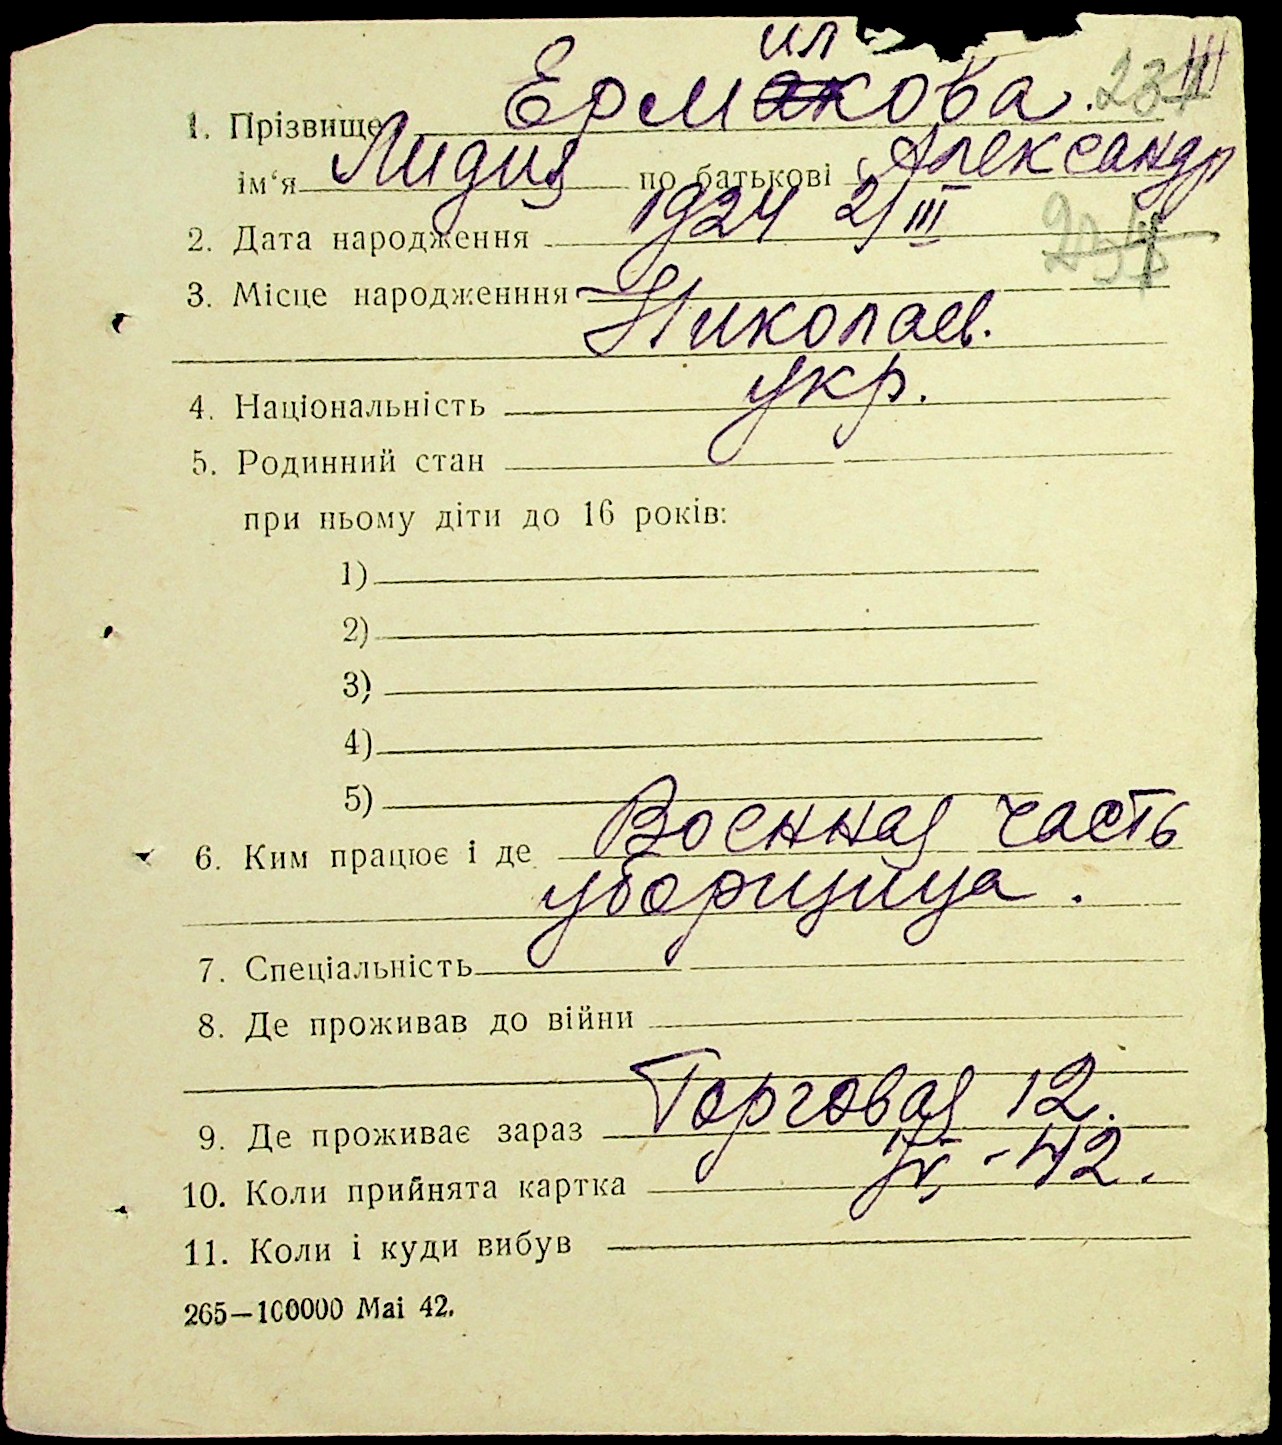 ил
1. Прізвище Ермакова. 237 III
ім‘я Лидия по батькові Александр
2. Дата народження 1924 2/III
3. Місце народженння Николаев.
4. Національність укр.
5. Родинний стан
при ньому діти до 16 років:
1)
2)
3)
4)
5)
6. Ким працює і де Военная часть
уборщица.
7. Спеціальність
8. Де проживав до війни
9. Де проживає зараз Торговая 12.
10. Коли прийнята картка -42.
11. Коли і куди вибув
265—100000 Mai 42.